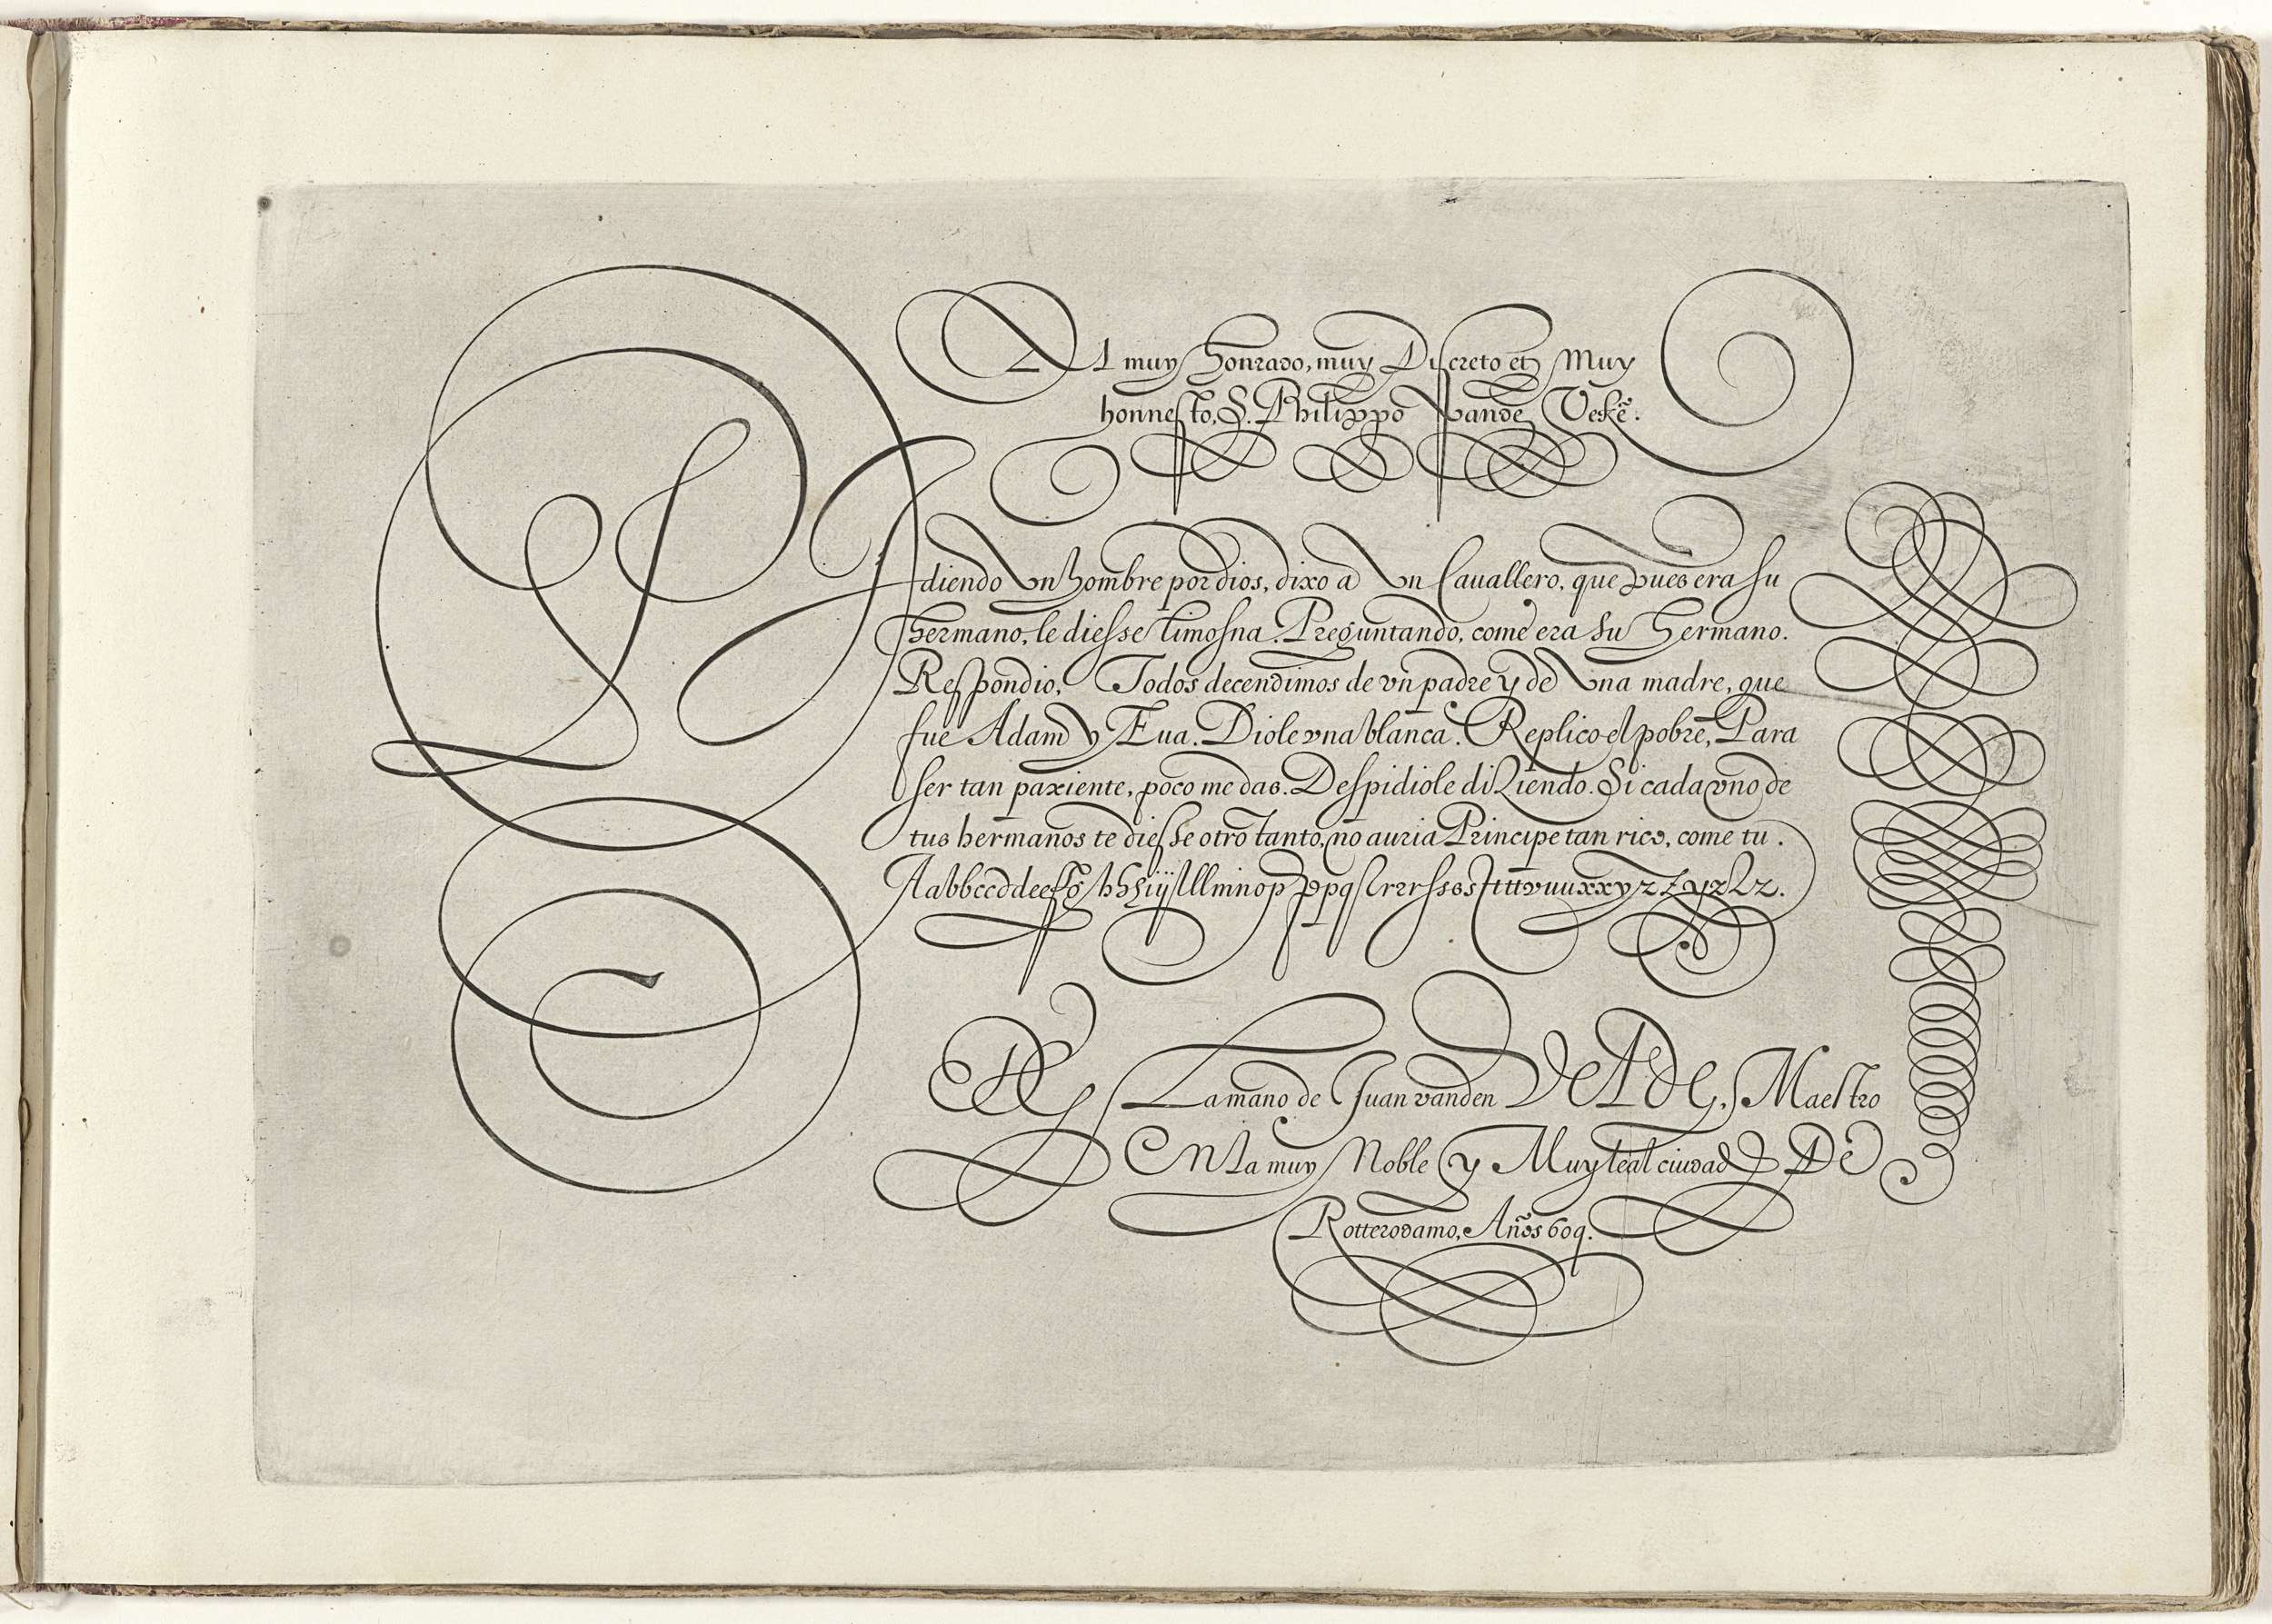 Al muy honrado, muy Discreto et Muy
honnesto, S. Philippo Vandẽ Vekẽ.
Pidiendo Vn hombre por dios, dixo a Vn Cauallero, que pues era su
hermano, le diesse limosna. Preguntando, come era su hermano.
Respondio, Todos decendimos de vn padre y de Vna madre, que
fue Adam y Eua. Diole vna blanca. Replico el pobre, Para
ser tan paxiente, poco me das. Despidiole diziendo. Si cada vno de
tus hermanos te diesse otro tanto, no auria Principe tan rico, come tu.
Aabbccddeeffg hhhiijlllmnopppqſſrrrſsssſttttvuuxxyzzyzzz.
De La mano de Juan vanden VELDE, Maestro
En la muy Noble y Muy leal ciudad DE
Rotterodamo, Años 609.